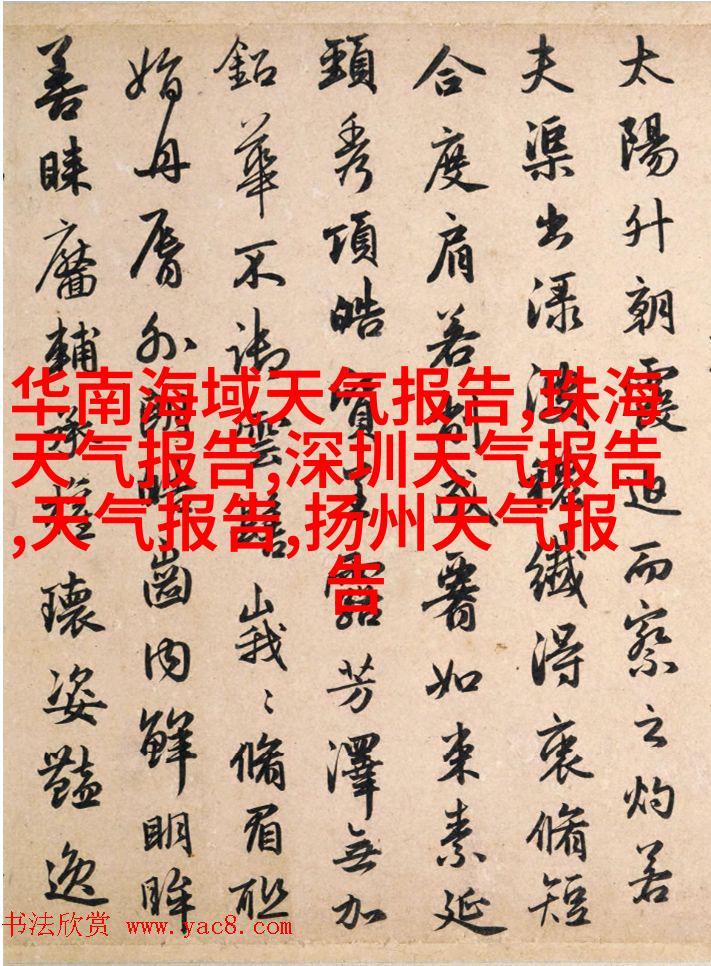 太陽升朝霞迫而察之灼若
夫渠出渌波穠纖得衷脩短
合度肩若削成如束素延
頸秀項皓質呈露芳澤無加
鉛華不御雲髻峩〻脩眉聯
娟丹脣外朗皓齒内鮮明眸
善睞靨輔承權瓌姿豔逸
华南海域天气报告,珠海
天气报告,深圳天气报告
,天气报告,扬州天气报
告
书法欣赏 www.yac8.com